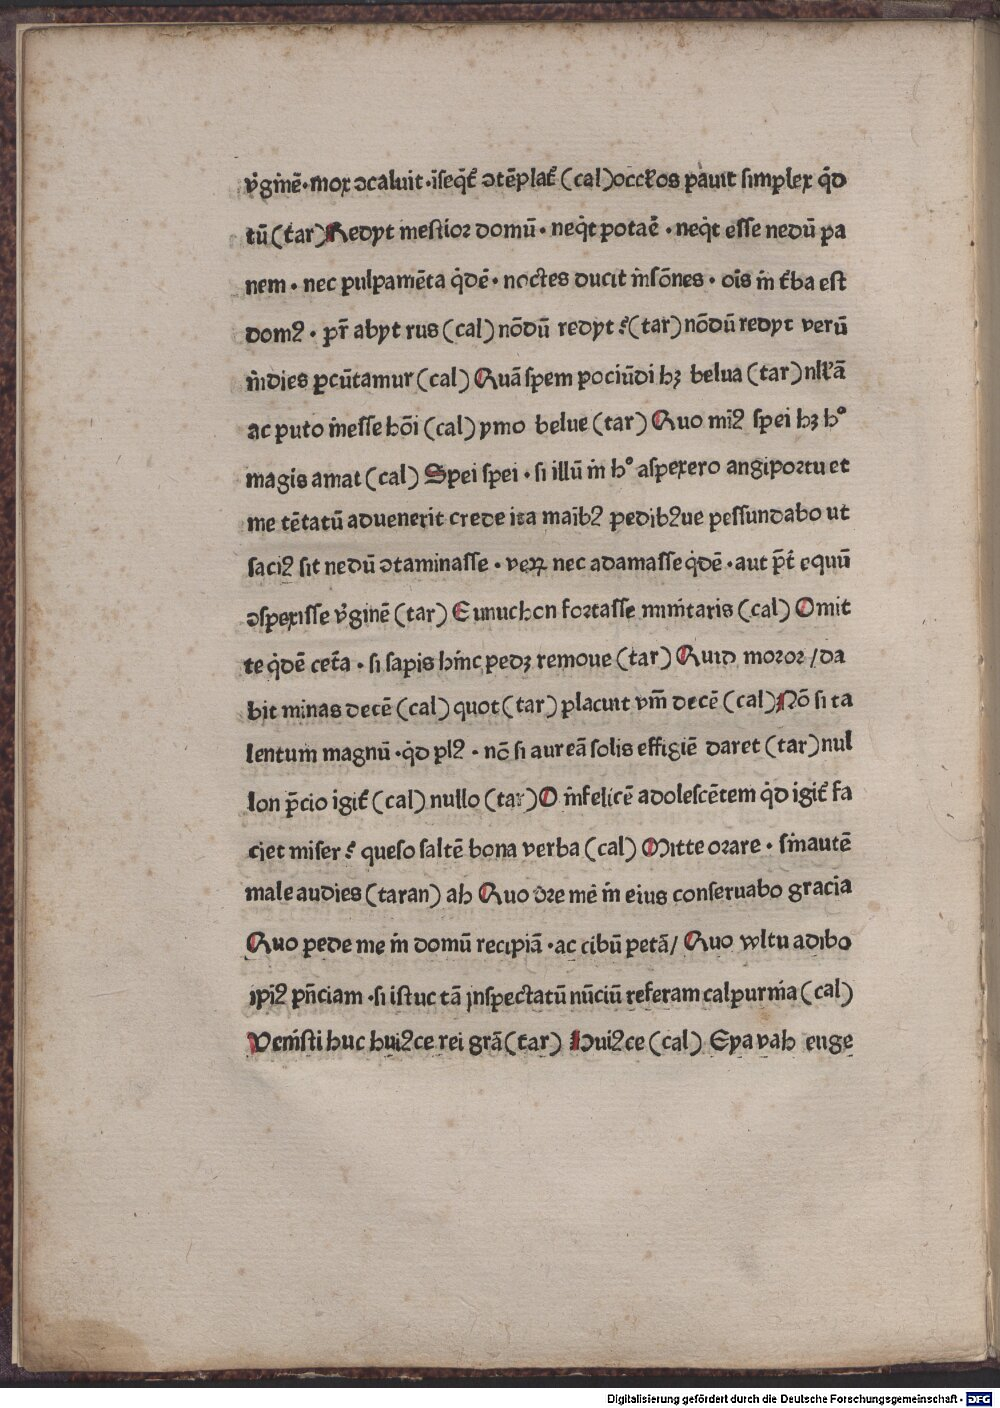 v̓ginē·mox ɔcaluit·iseq̄t̄ ɔtēplat̄ (cal)occłos pauit simplex q̇d
tū (tar)Redyt mestior domū·neq̇t potaē·neq̇t esse nedū pa
nem·nec pulpamēta q̇dē·noctes ducit insōnes·ois in t̄ba est
domꝰ·pr̄ abyt rus (cal) nōdū redyt ẜ (tar) nōdū redyt verū
indies pcūtamur (cal) Quā spem pociūdi hꝫ belua (tar) nłłā
ac puto inesse hōi (cal) ymo belue (tar) Quo miꝰ spei hꝫ h°
magis amat (cal) Spei spei·si illū in h° aspexero angiportu et
me tētatū aduenerit crede ita maibꝰ pedibꝰue pessundabo ut
saciꝰ sit nedū ɔtaminasse·veꝝ nec adamasse q̇dē·aut pt̄ equū
ɔspexisse v̓ginē (tar) Eunuchon fortasse minitaris (cal) Omit
te q̇dē cet̄a·si sapis hinc pedꝫ remoue (tar) Quid moror/da
bit minas decē (cal) quot (tar) placuit vm̄ decē (cal) Nō si ta
lentum magnū·q̇d plꝰ·nō si aureā solis effigiē daret (tar)nul
lon p̄cio igit̄ (cal) nullo (tar)O infelicē adolescētem q̇d igit̄ fa
ciet miser ẜ queso saltē bona verba (cal) Mitte orare·sinautē
male audies (taran) ah Quo ore mē in eius conseruabo gracia
Quo pede me in domū recipiā·ac cibū petā/ Quo vvltu adibo
ipiꝰ pn̄ciam·si istuc tā inspectatū nūciū referam calpurnia (cal)
Venisti huc huiꝰce rei grā (tar) Huiꝰce (cal) Eya vah enge
Digitalisierung gefördert durch die Deutsche Forschungsgemeinschaft - DFG